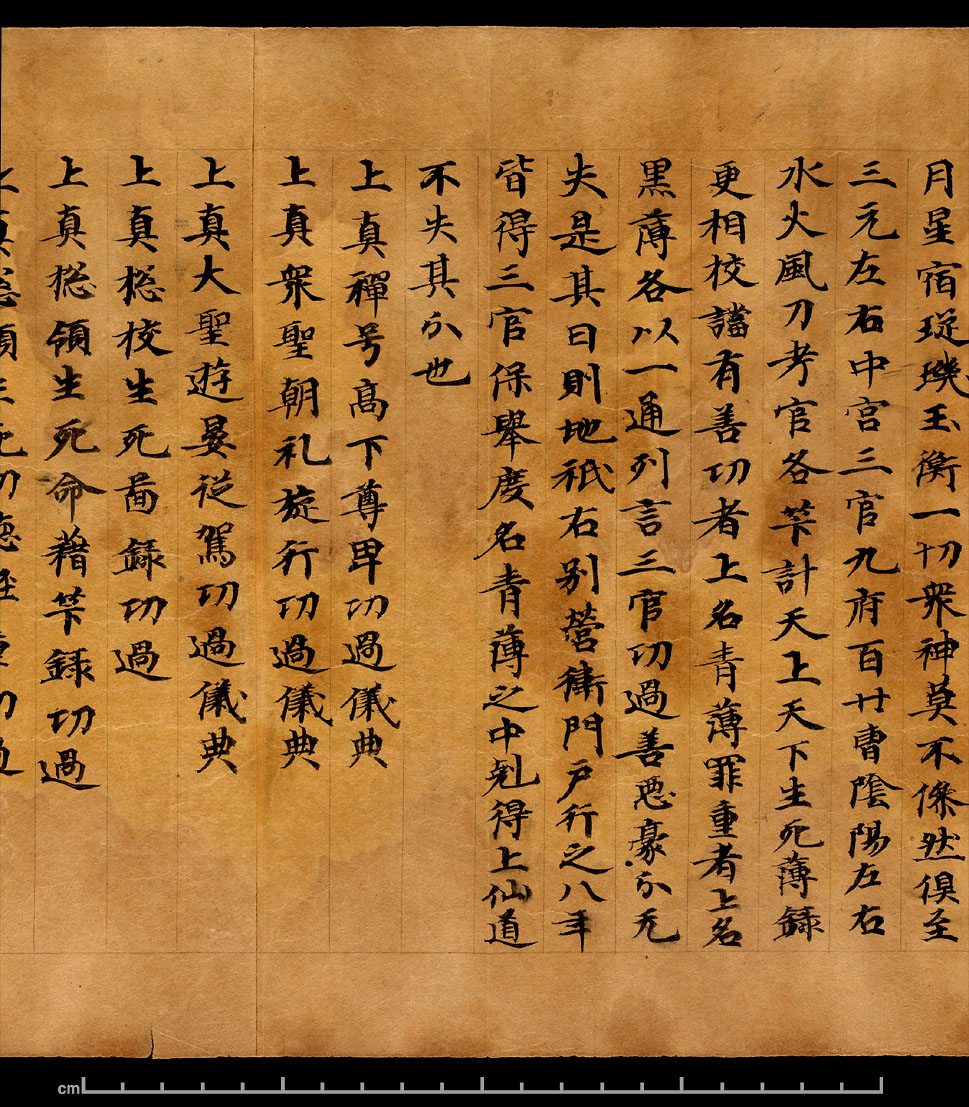 月星宿琁璣玉衡一切眾神莫不條然俱至
三元左右中宫三官九府百廿曹陰陽左右
水火風刀考官各竿計天上天下生死薄録
更相校讜有善功者上名青薄罪重者上名
黒薄各以一通列言三官功過善惡豪分无
失是其日則地祇右别營衛門户行之八年
皆得三官保舉度名青薄之中剋得上仙道
不失其分也
上真禪号高下尊卑功過儀典
上真眾聖朝礼旋行功過儀典
上真大聖遊晏從駕功過儀典
上真揔校生死啚録功過
上真揔領生死命藉竿録功過
上真揔領生死功德輕重功過
cm